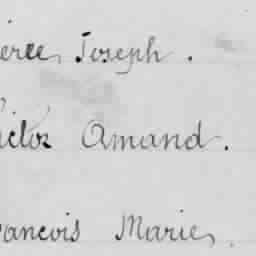 ierre, Joseph.
ictor Amand.
rancois Marie,